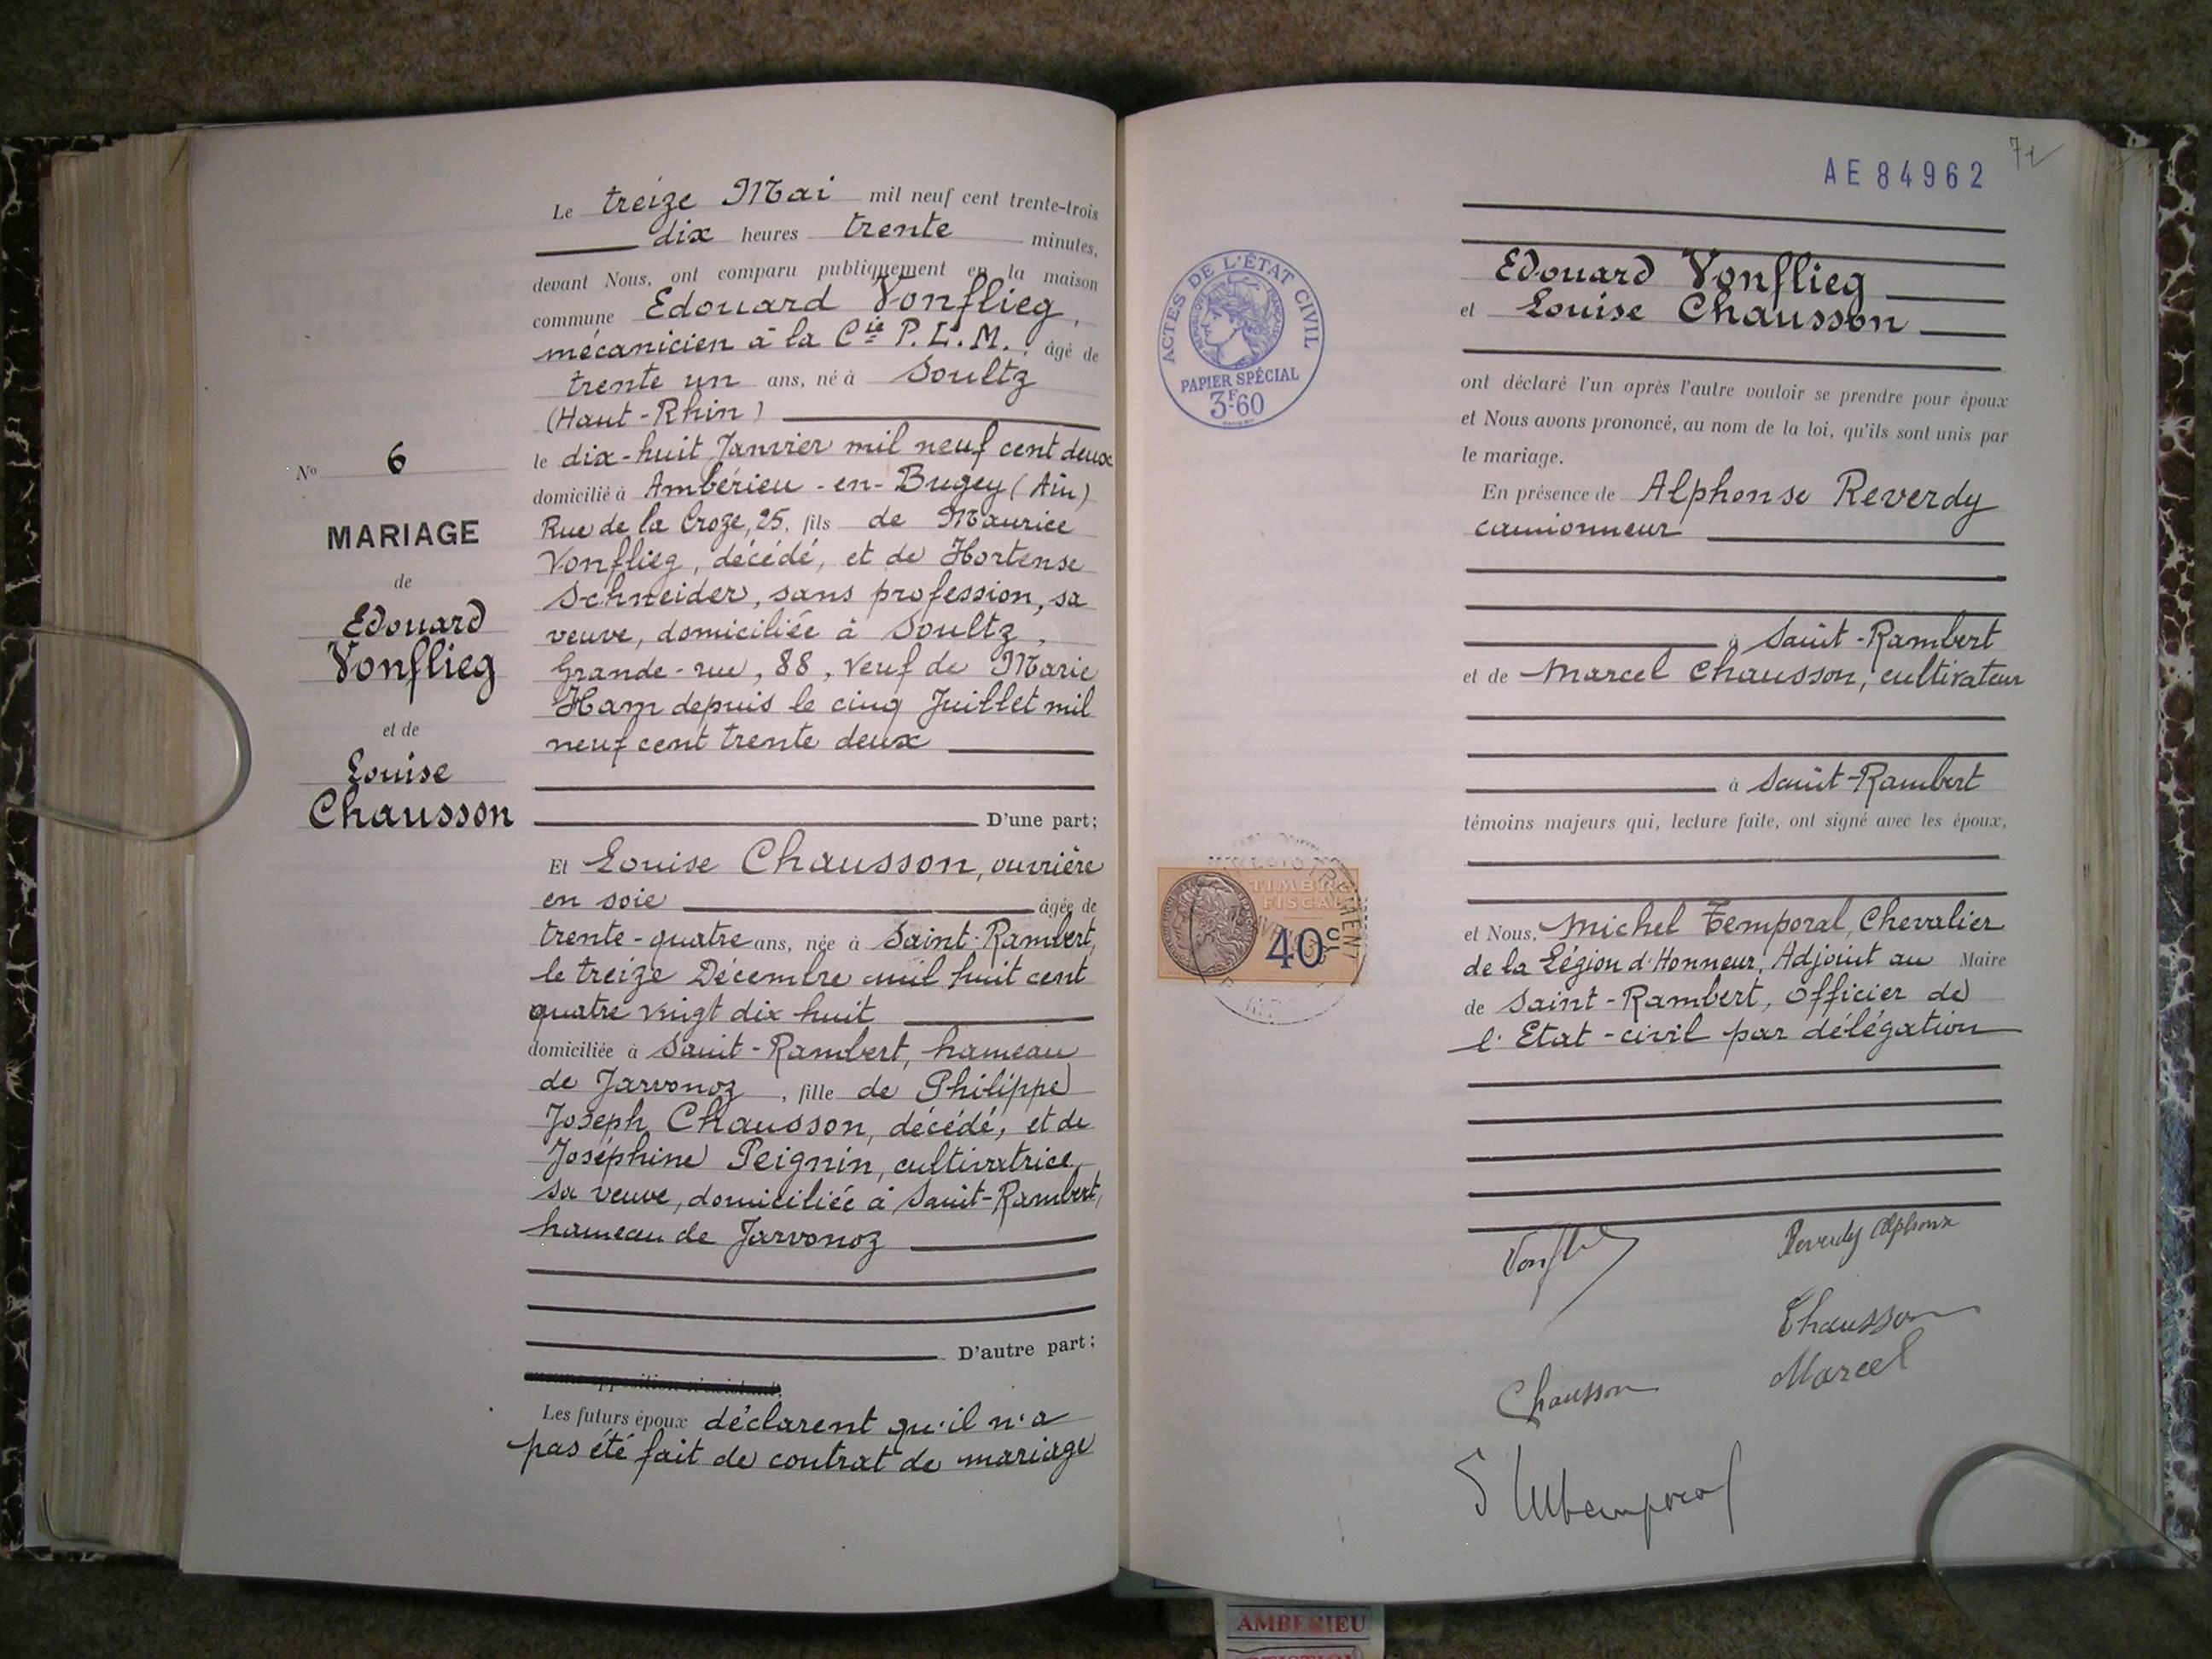 N° 6
MARIAGE
de
Edouard
Vonflieg
et de
Louise
Chausson
Le treize Mai mil neuf cent trente-trois
dix heures trente minutes,
devant Nous, ont comparu publiquement en la maison
commune Edouard Vonflieg,
mécanicien à la Cie P. L. M., âgé de
trente un ans, né à Soultz
(Haut-Rhin)
le dix-huit Janvier mil neuf cent deux
domicilié à Ambérieu-en-Bugey (Ain)
Rue de la Croze, 25, fils de Maurice
Vonflieg, décédé, et de Hortense
Schneider, sans profession, sa
veuve, domiciliée à Soultz,
Grande-rue, 88, veuf de Marie
Ham depuis le cinq Juillet mil
neuf cent trente deux
D'une part;
Et Louise Chausson, ouvrière
en soie âgée de
trente-quatre ans, née à Saint-Rambert,
le treize Décembre mil huit cent
quatre vingt dix huit
domiciliée à Saint-Rambert, hameau
de Jarvonoz, fille de Philippe
Joseph Chausson, décédé, et de
Joséphine Peignin, cultivatrice,
sa veuve, domiciliée à Saint-Rambert,
hameau de Jarvonoz
D'autre part;
Les futurs époux déclarent qu'il n'a
pas été fait de contrat de mariage
AE 84962
72
ACTES DE L'ÉTAT CIVIL
PAPIER SPÉCIAL
3F.60
Edouard Vonflieg
et Louise Chausson
ont déclaré l'un après l'autre vouloir se prendre pour époux
et Nous avons prononcé, au nom de la loi, qu'ils sont unis par
le mariage.
En présence de Alphonse Reverdy
camionneur
à Saint-Rambert
et de Marcel Chausson, cultivateur
à Saint-Rambert
témoins majeurs qui, lecture faite, ont signé avec les époux,
TIMBRE
FISCAL
40c
et Nous, Michel Temporal, Chevalier
de la Légion d'Honneur, Adjoint au Maire
de Saint-Rambert, officier de
l'Etat-civil par délégation
Reverdy Alphonse
Chausson
Marcel
Chausson
AMBERIEU